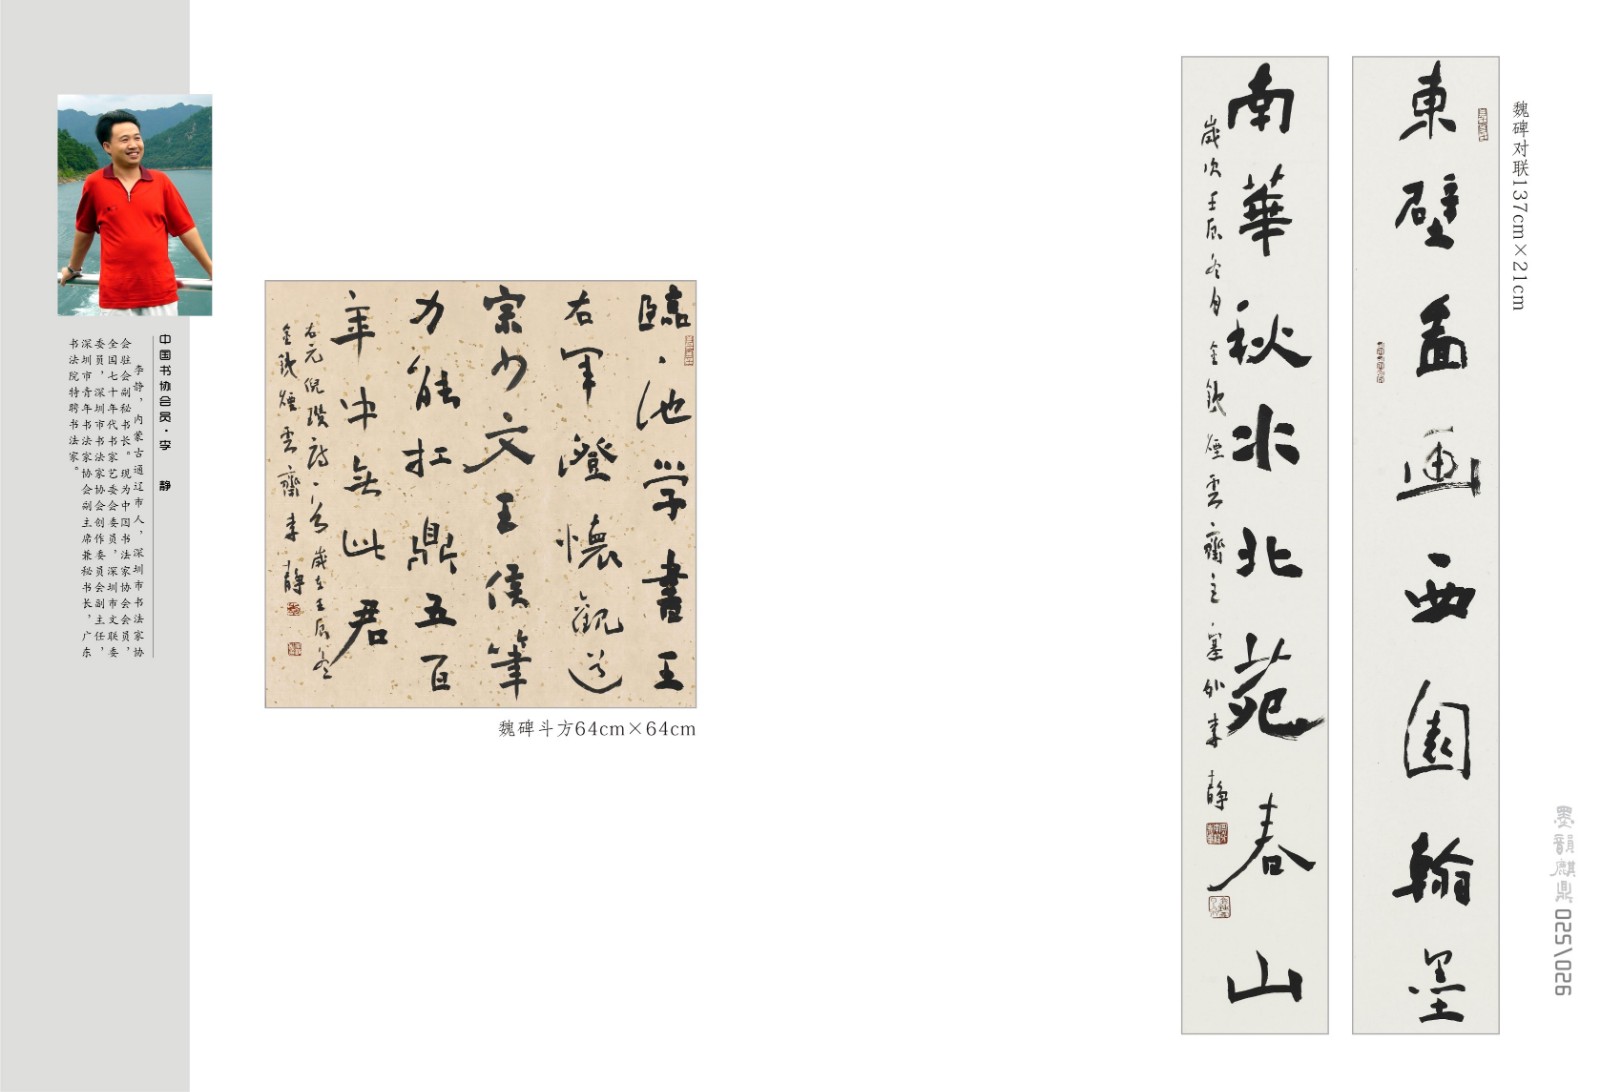 中国书协会员·李　静
李静，内蒙古通辽市人，深圳市书法家协
会驻会副秘书长。现为中国书法家协会会员，
全国七十年代书家艺委会委员，深圳市文联委
委员，深圳市书法家协会创作委员会副主任，
深圳市青年书法家协会副主席兼秘书长，广东
书法院特聘书法家。
臨池学書王
右軍澄懷觀道
宗少文王侯筆
力能扛鼎五百
年中無此君
右元倪瓚詩
歲在壬辰冬
煙雲齋李靜
魏碑斗方64cm×64cm
魏碑对联137cm×21cm
東壁画西園翰墨
南華秋水北苑春山
歲次壬辰冬月
煙雲齋主塞外李靜
墨韻麒鼎 025\026